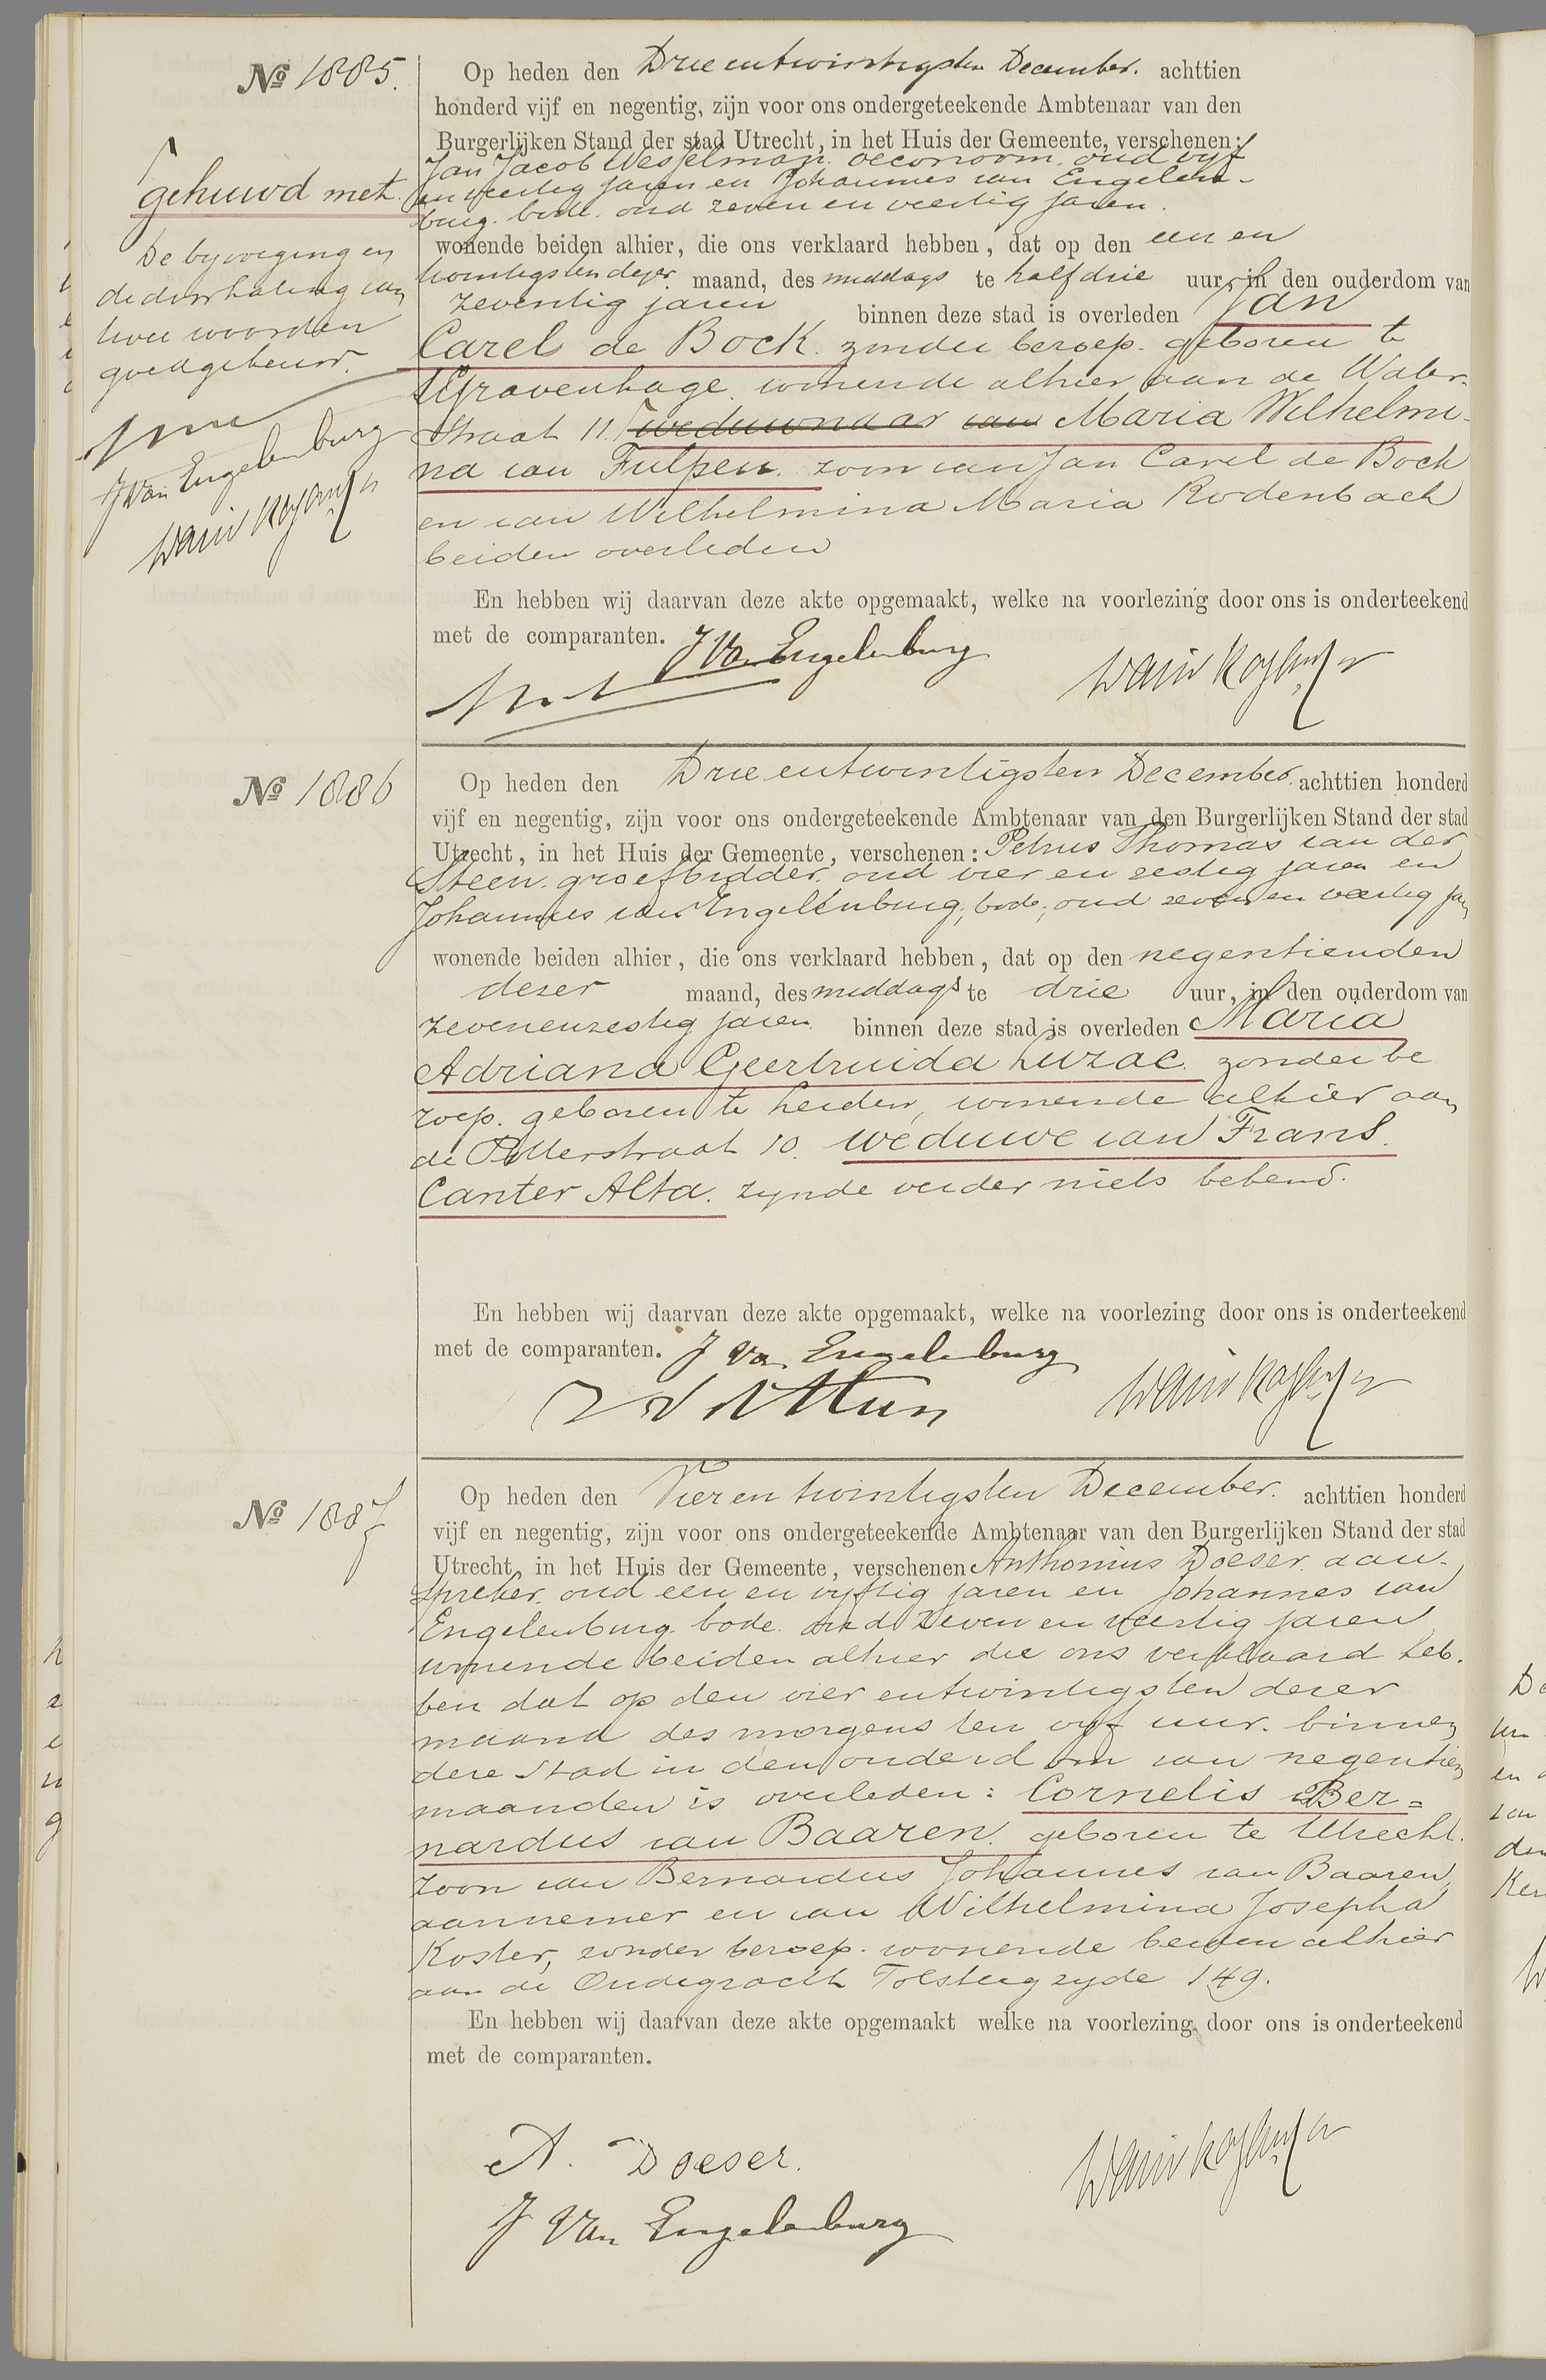 Nº 1885.
Op heden den Drieentwintigsten December. achttien
honderd vijf en negentig, zijn voor ons ondergeteekende Ambtenaar van den
Burgerlijken Stand der stad Utrecht, in het Huis der Gemeente, verschenen:
Jan Jacob Wesselman. oeconoom. oud vijf
en veertig jaren en Johannes van Engelen-
burg. bode. oud zeven en veertig jaren.
wonende beiden alhier, die ons verklaard hebben, dat op den een en
twintigsten dezer maand, des middags te half drie uur, in den ouderdom van
zeventig jaren binnen deze stad is overleden Jan
Carel de Bock. zonder beroep. geboren te
's Gravenhage. wonende alhier aan de Water-
straat 11. weduwnaar van Maria Wilhelmi-
na van Fulpen. zoon van Jan Carel de Bock
en van Wilhelmina Maria Rodenbach
beiden overleden
En hebben wij daarvan deze akte opgemaakt, welke na voorlezing door ons is onderteekend
met de comparanten. J Van Engelenburg
gehuwd met.
De byvoeging en
de doorhaling van
twee woorden
goedgekeurd.
J Van Engelenburg
Nº 1886
Op heden den Drieentwintigsten December. achttien honderd
vijf en negentig, zijn voor ons ondergeteekende Ambtenaar van den Burgerlijken Stand der stad
Utrecht, in het Huis der Gemeente, verschenen: Petrus Thomas van der
Steen. groefbidder. oud vier en zestig jaren en
Johannes van Engelenburg, bode, oud zeven en veertig jaren
wonende beiden alhier, die ons verklaard hebben, dat op den negentienden
dezer maand, des middags te drie uur, in den ouderdom van
zevenenzestig jaren binnen deze stad is overleden Maria
Adriana Geertruida Luzac. zonder be
roep. geboren te Leiden, wonende alhier aan
de Potterstraat 10. weduwe van Frans
Canter Alta. zynde verder niets bekend.
En hebben wij daarvan deze akte opgemaakt, welke na voorlezing door ons is onderteekend
met de comparanten. J Van Engelenburg
Nº 1887
Op heden den Vier en twintigsten December. achttien honderd
vijf en negentig, zijn voor ons ondergeteekende Ambtenaar van den Burgerlijken Stand der stad
Utrecht, in het Huis der Gemeente, verschenen Anthonius Doeser. aan-
spreker. oud een en vyftig jaren en Johannes van
Engelenburg. bode. oud zeven en veertig jaren
wonende beiden alhier die ons verklaard heb-
ben dat op den vier entwintigsten dezer
maand des morgens ten vyf uur. binnen
deze stad in den ouderdom van negentien
maanden is overleden: Cornelis Ber=
nardus van Baaren. geboren te Utrecht.
zoon van Bernardus Johannes van Baaren,
aannemer en van Wilhelmina Josepha
Koster, zonder beroep. wonende beiden alhier
aan de Oudegracht Tolsteegzyde 149.
En hebben wij daarvan deze akte opgemaakt welke na voorlezing door ons is onderteekend
met de comparanten.
A. Doeser.
J Van Engelenburg